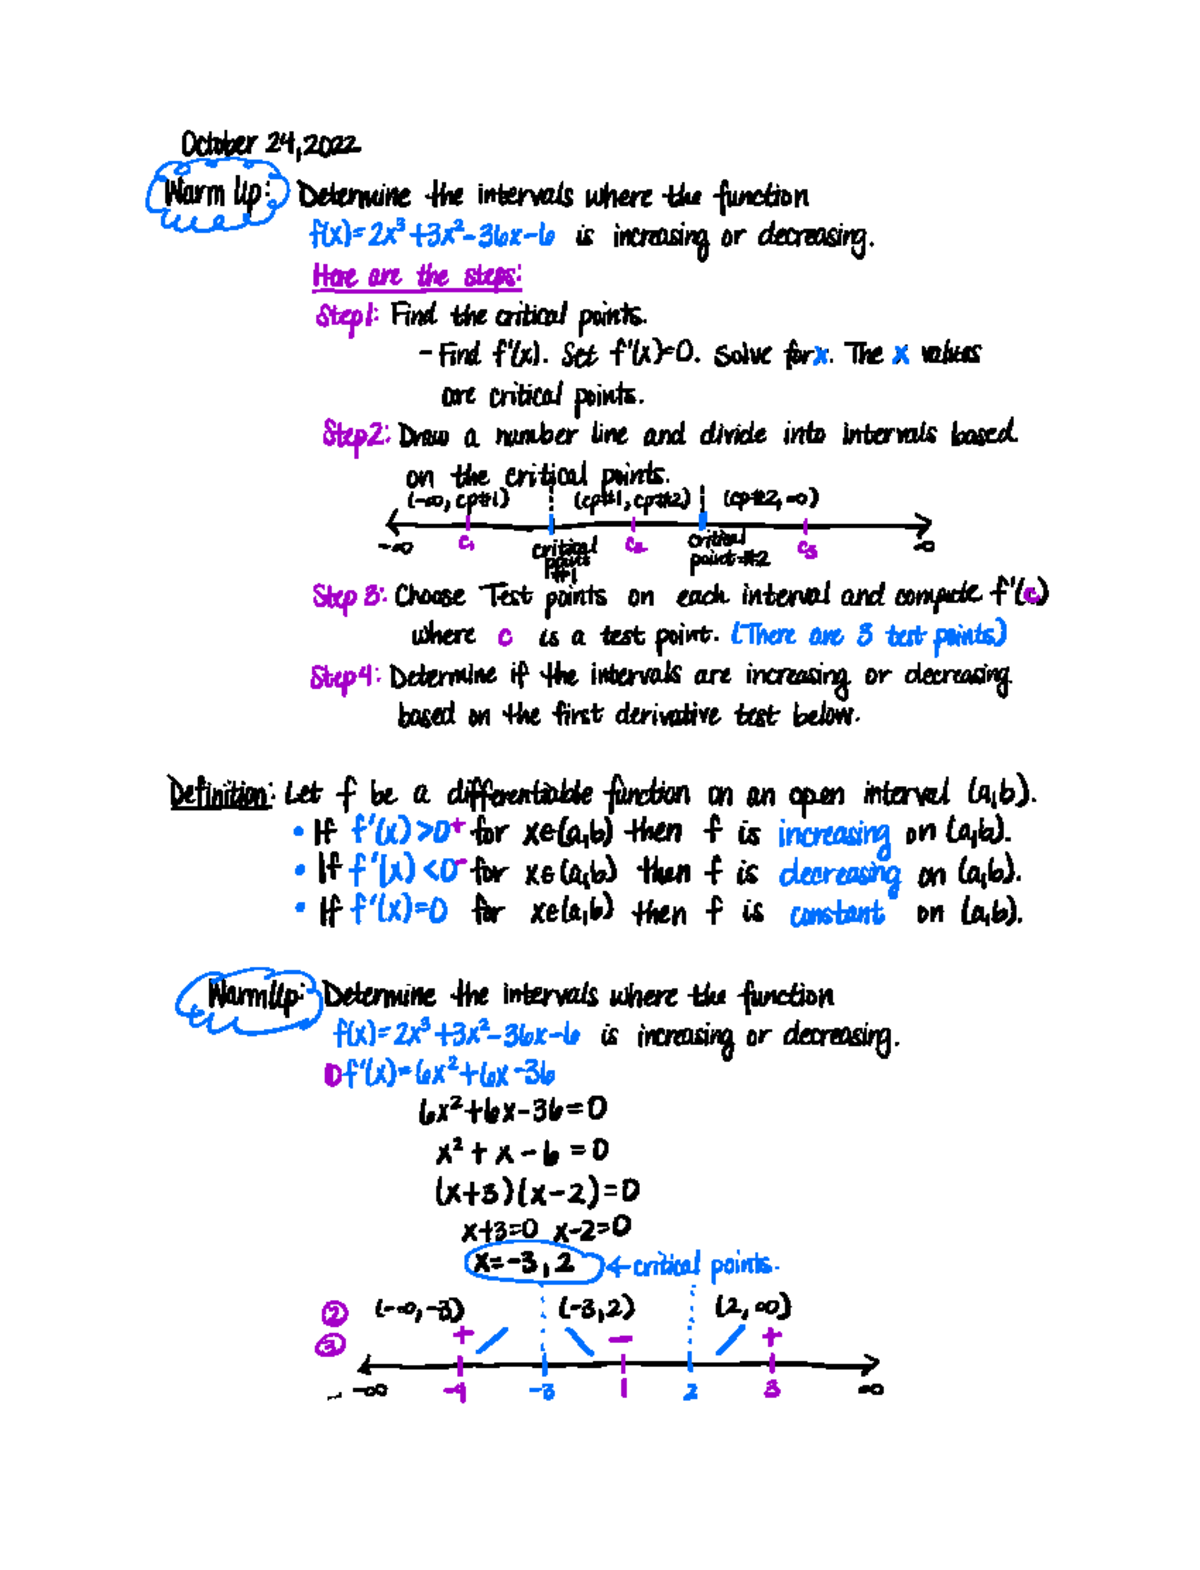 October 24, 2022
Warm Up: Determine the intervals where the function
f(x)=2x³+3x²-36x-6 is increasing or decreasing.
Here are the steps:
Step 1: Find the critical points.
- Find f'(x). Set f'(x)=0. Solve for x. The x values
are critical points.
Step 2: Draw a number line and divide into intervals based
on the critical points.
(-∞, cp#1) (cp#1, cp#2) (cp#2, ∞)
-∞ c₁ critical point #1 c₂ critical point #2 c₃ ∞
Step 3: Choose Test points on each interval and compute f'(c)
where c is a test point. (There are 3 test points)
Step 4: Determine if the intervals are increasing or decreasing
based on the first derivative test below.
Definition: Let f be a differentiable function on an open interval (a,b).
• If f'(x) >0 + for x∈(a,b) then f is increasing on (a,b).
• If f'(x) <0 - for x∈(a,b) then f is decreasing on (a,b).
• If f'(x)=0 for x∈(a,b) then f is constant on (a,b).
Warm Up: Determine the intervals where the function
f(x)=2x³+3x²-36x-6 is increasing or decreasing.
① f'(x)=6x²+6x-36
6x²+6x-36=0
x²+x-6=0
(x+3)(x-2)=0
x+3=0 x-2=0
x=-3, 2 ← critical points.
② (-∞,-3) (-3,2) (2,∞)
③ + - +
-∞ -4 -3 1 2 3 ∞